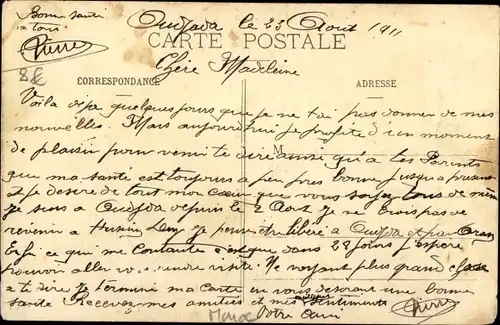 Bonne santé
a tous
Pierre
Oudjda le 23 Août 1911
CARTE POSTALE
8€
Chère Madeleine
CORRESPONDANCE
ADRESSE
Voila deja quelques jours que je ne t'ai pas donner de mes
nouvelles. Mais aujourd'hui je profite d'un moment
M
de plaisir pour venir te dire ainsi qu'a tes Parents
que ma santé est toujours a peu pres bonne jusqu'a present
et je desire de tout mon cœur que vous soyez tous de même
Je suis a Oudjda depuis le 2 Aout je ne crois pas
revenir a Hussein Dey je pense être libéré a Oudjda et par Oran
Enfin ce qui me contente c'est que dans 28 jours j'espere
pouvoir aller vous rendre visite. Ne voyant plus grand chose
a te dire je termine ma Carte en vous desirant une bonne
santé Recevez mes amitiés et mes meilleurs sentiments
Votre ami
Pierre
Maroc